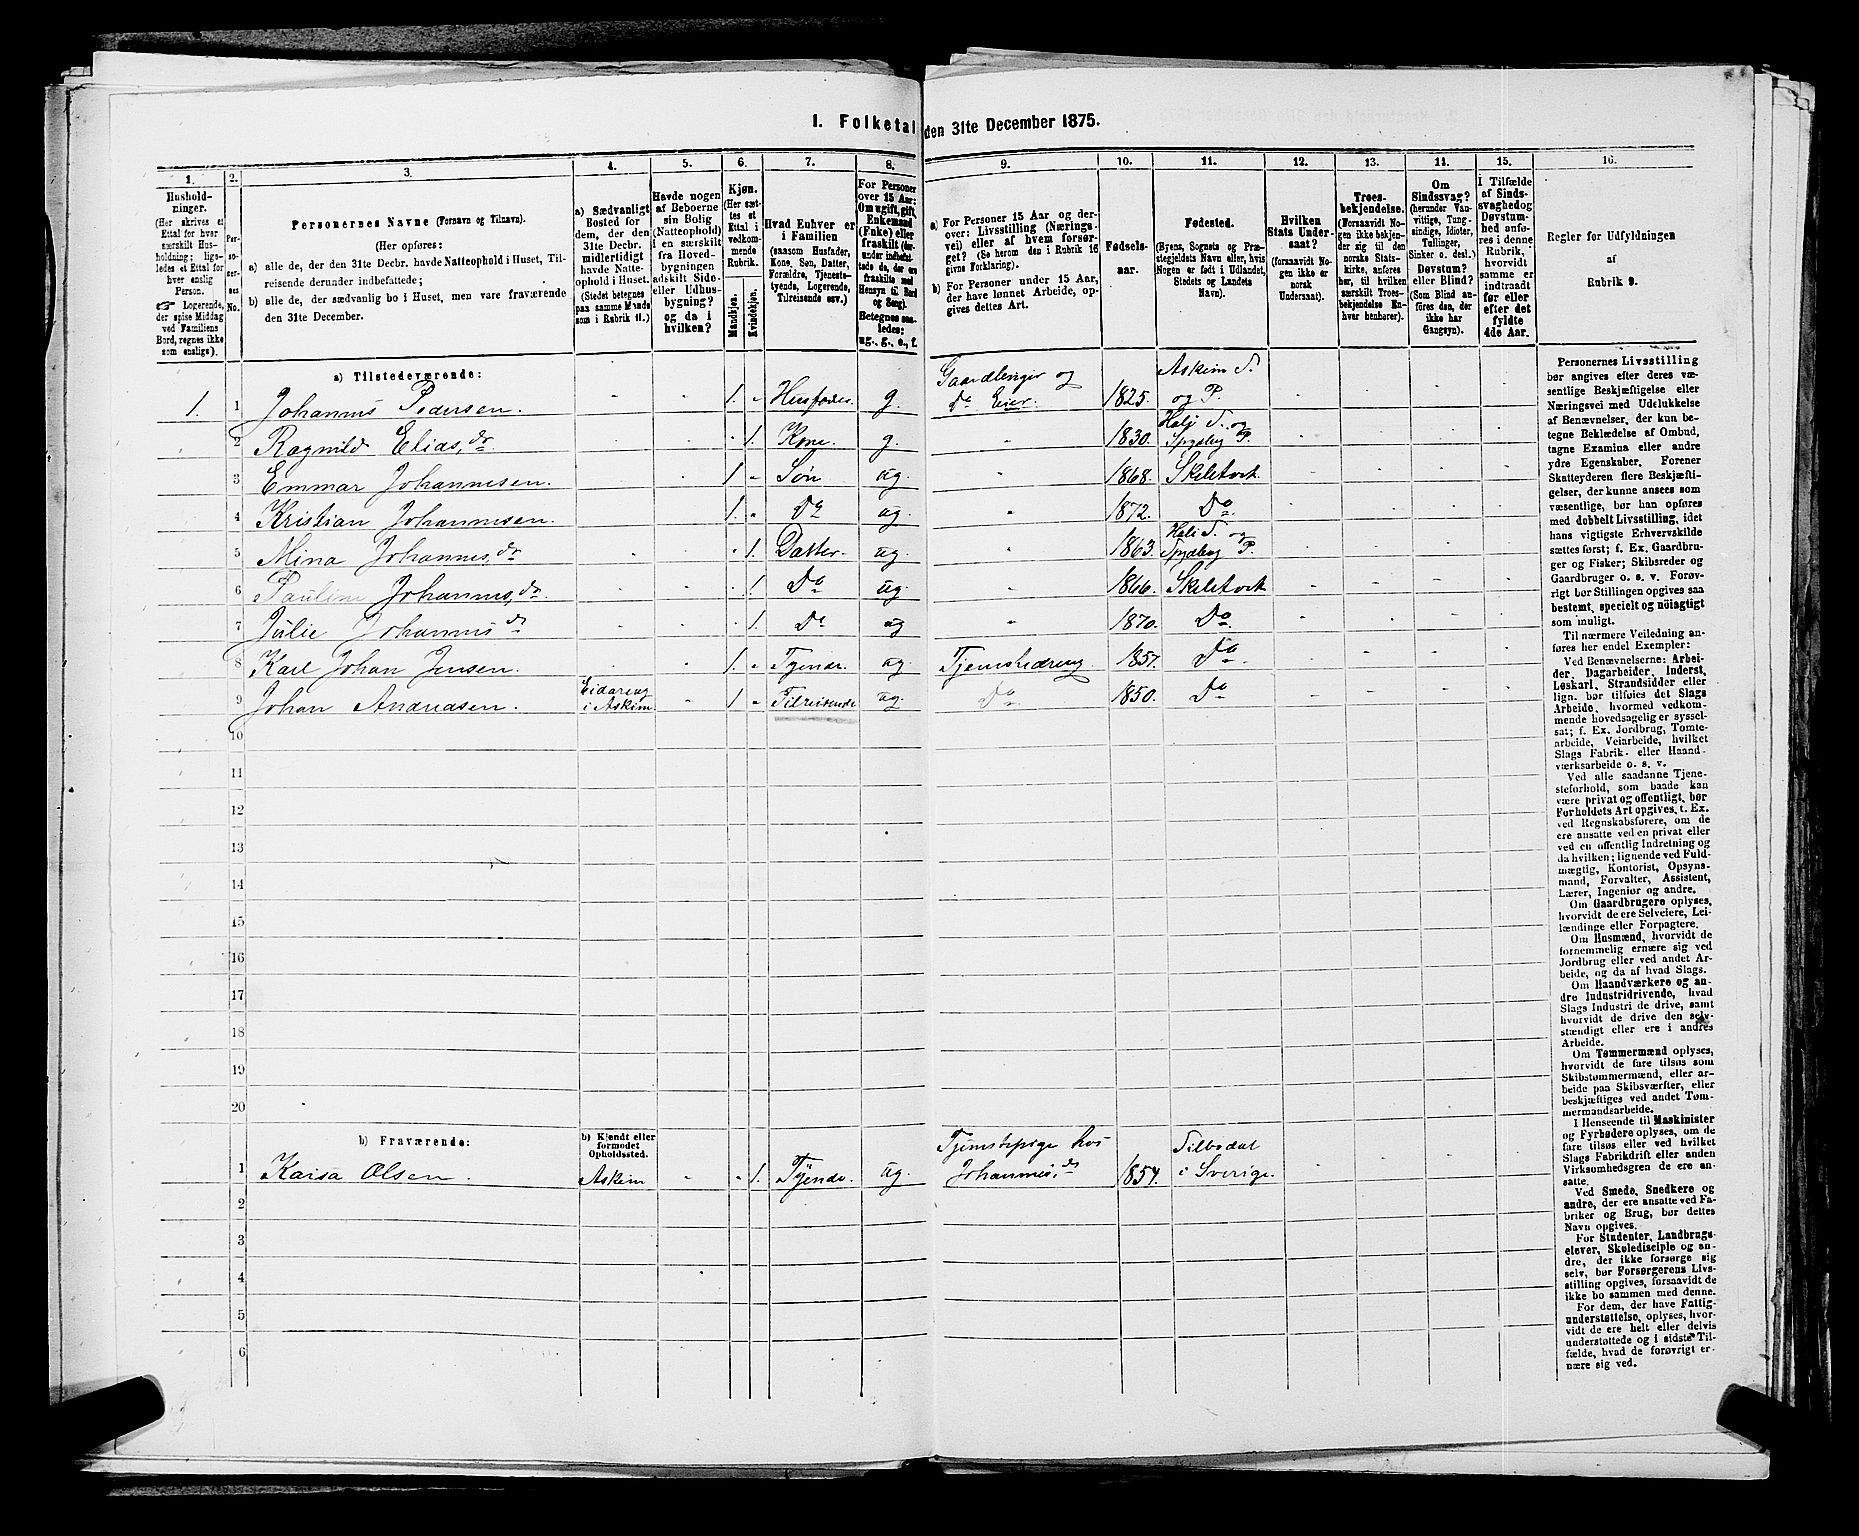 1. Folketal den 31te December 1875.
1. 2. 3. 4. 5. 6. 7. 8. 9. 10. 11. 12. 13. 14. 15. 16.
Hushold-
ninger.
(Her skrives et
Ettal for hver
særskilt Hus-
holdning; lige-
ledes et Ettal for
hver enslig
Person.
☞ Logerende,
der spise Middag
ved Familiens
Bord, regnes ikke
som enslige).
Per-
so-
ner-
nes
No.
Personernes Navne (Fornavn og Tilnavn).
(Her opføres:
a) alle de, der den 31te Decbr. havde Natteophold i Huset, Til-
reisende derunder indbefattede;
b) alle de, der sædvanlig bo i Huset, men vare fraværende
den 31te December.
a) Sædvanligt
Bosted for
dem, der den
31te Decbr.
midlertidigt
havde Natte-
ophold i Huset.
(Stedet betegnes
paa samme Maade
som i Rubrik 11.)
Havde nogen
af Beboerne
sin Bolig
(Natteophold)
i en særskilt
fra Hoved-
bygningen
adskilt Side-
eller Udhus-
bygning?
og da i
hvilken?
Kjøn.
(Her sæt-
tes et
Ettal i
vedkom-
mende
Rubrik.
Mandkjøn.
Kvindekjøn.
Hvad Enhver er
i Familien
(saasom Husfader,
Kone, Søn, Datter,
Forældre, Tjeneste-
tyende, Logerende,
Tilreisende osv.)
For Personer
over 15 Aar:
Om ugift, gift,
Enkemand
(Enke) eller
fraskilt (her-
under indbefat-
tede de, der ere
fraskilte med
Hensyn til Bord
og Seng).
Betegnes saa-
ledes:
ug., g., e., f.
a) For Personer 15 Aar og der-
over: Livsstilling (Nærings-
vei) eller af hvem forsør-
get? (Se herom den i Rubrik 16
givne Forklaring).
b) For Personer under 15 Aar,
der have lønnet Arbeide, op-
gives dettes Art.
Fødsels-
aar.
Fødested.
(Byens, Sognets og Præ-
stegjeldets Navn eller, hvis
Nogen er født i Udlandet,
Stedets og Landets
Navn).
Hvilken
Stats Under-
saat?
(foraavidt No-
gen ikke er
norsk
Undersaat).
Troes-
bekjendelse.
(Foraavidt No-
gen ikke bekjen-
der sig til den
norske Stats-
kirke, anføres
her, til hvilken
særskilt Troes-
bekjendelse En-
hver henhører).
Om
Sindssvag?
(herunder Van-
vittige, Tung-
sindige, Idioter,
Tullinger,
Sinker o. desl.)
Døvstum?
eller Blind?
(Som Blind an-
føres den, der
ikke har
Gangsyn).
I Tilfælde
af Sinds-
svaghed og
Døvstum-
hed anfø-
res i denne
Rubrik,
hvorvidt
samme er
indtraadt
før eller
efter det
fyldte
4de Aar.
Regler for Udfyldningen
af
Rubrik 9.
a) Tilstedeværende:
1. 1 Johannes Pedersen. 1. Husfader. g. Gaardbruger og Do Eier. 1825. Askim S. og P.
2 Ragnild Elias,dr 1. Kone. g. 1830. Halj S. og Spydeberg P.
3 Emmar Johannesen. 1 Søn ug. 1868. Skibtvet.
4 Kristian Johannesen. 1. Do ug. 1872. Do.
5 Mina Johannes,dr 1. Datter. ug. 1863. Halj S. og Spydeberg P.
6 Pauline Johannes,dr. 1. Do ug. 1866. Skibtvet
7 Julie Johannes dr 1. Do ug 1870. Do.
8 Karl Johan Jensen. 1. Tyende. ug. Tjenestedreng. 1857. Do.
9 Johan Andreasen. i Askim 1 Tilreisende ug. Do. 1850. Do
10
11
12
13
14
15
16
17
18
19
20
b) Fraværende:
b) Kjendt eller
formodet
Opholdssted.
1 Kaisa Olsen. Askim 1. Tyende. ug. Tjenestepige hos Johannes,ds 1854. i Sverige.
2
3
4
5
6
Personernes Livsstilling
bør angives efter deres væ-
sentlige Beskjæftigelse eller
Næringsvei med Udelukkelse
af Benævnelser, der kun be-
tegne Beklædelse af Ombud,
tagne Examina eller andre
ydre Egenskaber. Forener
Skatteyderen flere Beskjæfti-
gelser, der kunne ansees som
væsentlige, bør han opføres
med dobbelt Livsstilling, idet
hans vigtigste Erhvervskilde
sættes først; f. Ex. Gaardbru-
ger og Fisker; Skibsreder og
Gaardbruger o. s. v. Forøv-
rigt bør Stillingen opgives saa
bestemt, specielt og nøiagtigt
som muligt.
Til nærmere Veiledning an-
føres her endel Exempler:
Ved Benævnelserne: Arbei-
der, Dagarbeider, Inderst,
Løskarl, Strandsidder eller
lign. bør tilføies det Slags
Arbeide, hvormed vedkom-
mende hovedsagelig er syssel-
sat; f. Ex. Jordbrug, Tømte-
arbeide, Veiarbeide, hvilket
Slags Fabrik- eller Haand-
værksarbeide o. s. v.
Ved alle saadanne Tjene-
steforhold, som baade kan
være privat og offentligt, bør
Forholdets Art opgives, t. Ex.
ved Regnskabsførere, om de
ere ansatte ved en privat eller
ved en offentlig Indretning og
da hvilken; lignende ved Fuld-
mægtig, Kontorist, Opsyns-
mand, Forvalter, Assistent,
Lærer, Ingeniør og andre.
Om Gaardbrugere oplyses,
hvorvidt de ere Selveiere, Lei-
lændinge eller Forpagtere.
Om Husmænd, hvorvidt de
fornemmelig ernære sig ved
Jordbrug eller ved andet Ar-
beide, og da af hvad Slags.
Om Haandværkere og an-
dre Industridrivende, hvad
Slags Industri de drive, samt
hvorvidt de drive den selv-
stændigt eller ere i andres
Arbeide.
Om Tømmermænd oplyses,
hvorvidt de fare tilsøs som
Skibstømmermænd, eller ar-
beide paa Skibsværfter, eller
beskjæftiges ved andet Tøm-
mermandsarbeide.
I Henseende til Maskinister
og Fyrbødere oplyses, om de
fare tilsøs eller ved hvilket
Slags Fabrikdrift eller anden
Virksomhedsgren de ere an-
satte.
Ved Smede, Snedkere og
andre, der ere ansatte ved Fa-
briker og Brug, bør dettes
Navn opgives.
For Studenter, Landbrugs-
elever, Skoledisciple og an-
dre, der ikke forsørge sig
selv, bør Forsørgerens Livs-
stilling opgives, forsaavidt de
ikke bo sammen med denne.
For dem, der have Fattig-
understøttelse, oplyses, hvor-
vidt de ere helt eller delvis
understøttede og i sidste Til-
fælde, hvad de forøvrigt er-
nære sig ved.